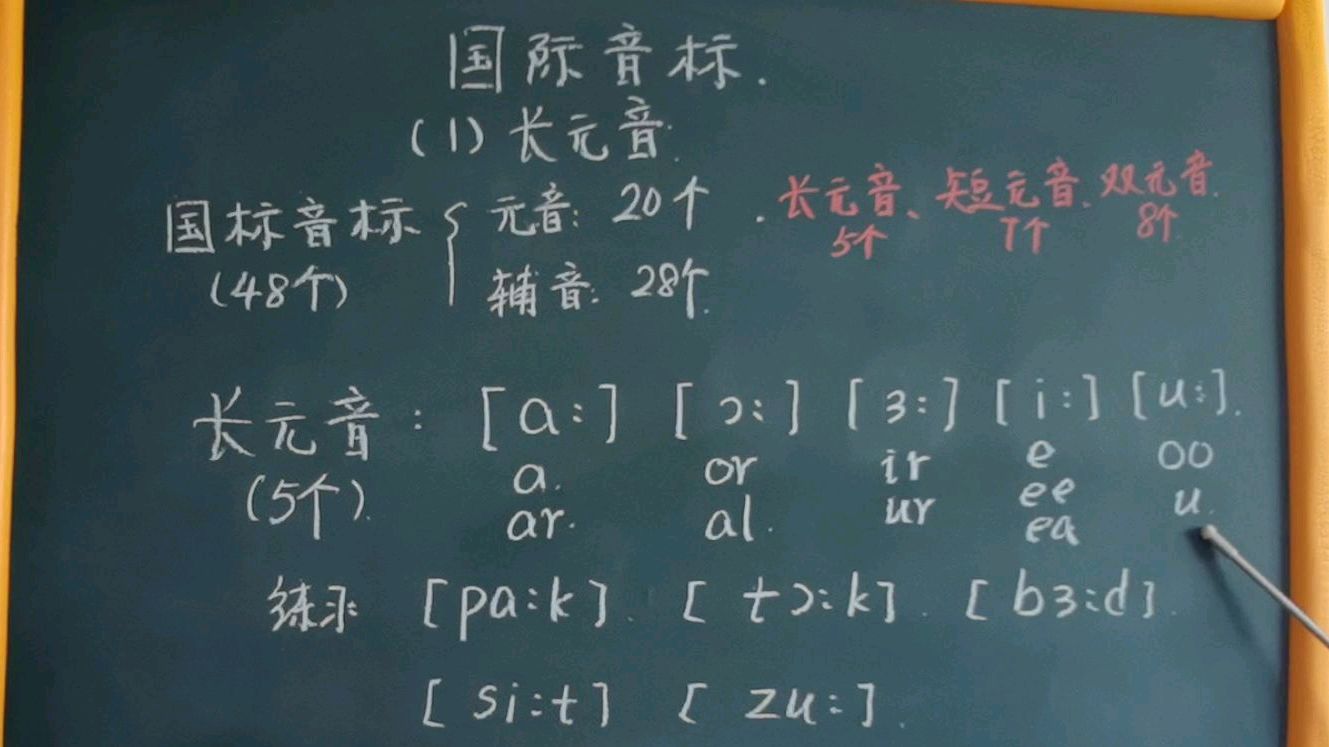 国际音标.
(1) 长元音.
国标音标 { 元音: 20个. 长元音、短元音、双元音.
5个 7个 8个
(48个) 辅音: 28个.
长元音: [a:] [ɔ:] [ɜ:] [i:] [u:].
(5个). a. or ir e oo
ar. al. ur ee u.
ea
练习 [pa:k]. [tɔ:k]. [bɜ:d].
[si:t] [zu:].